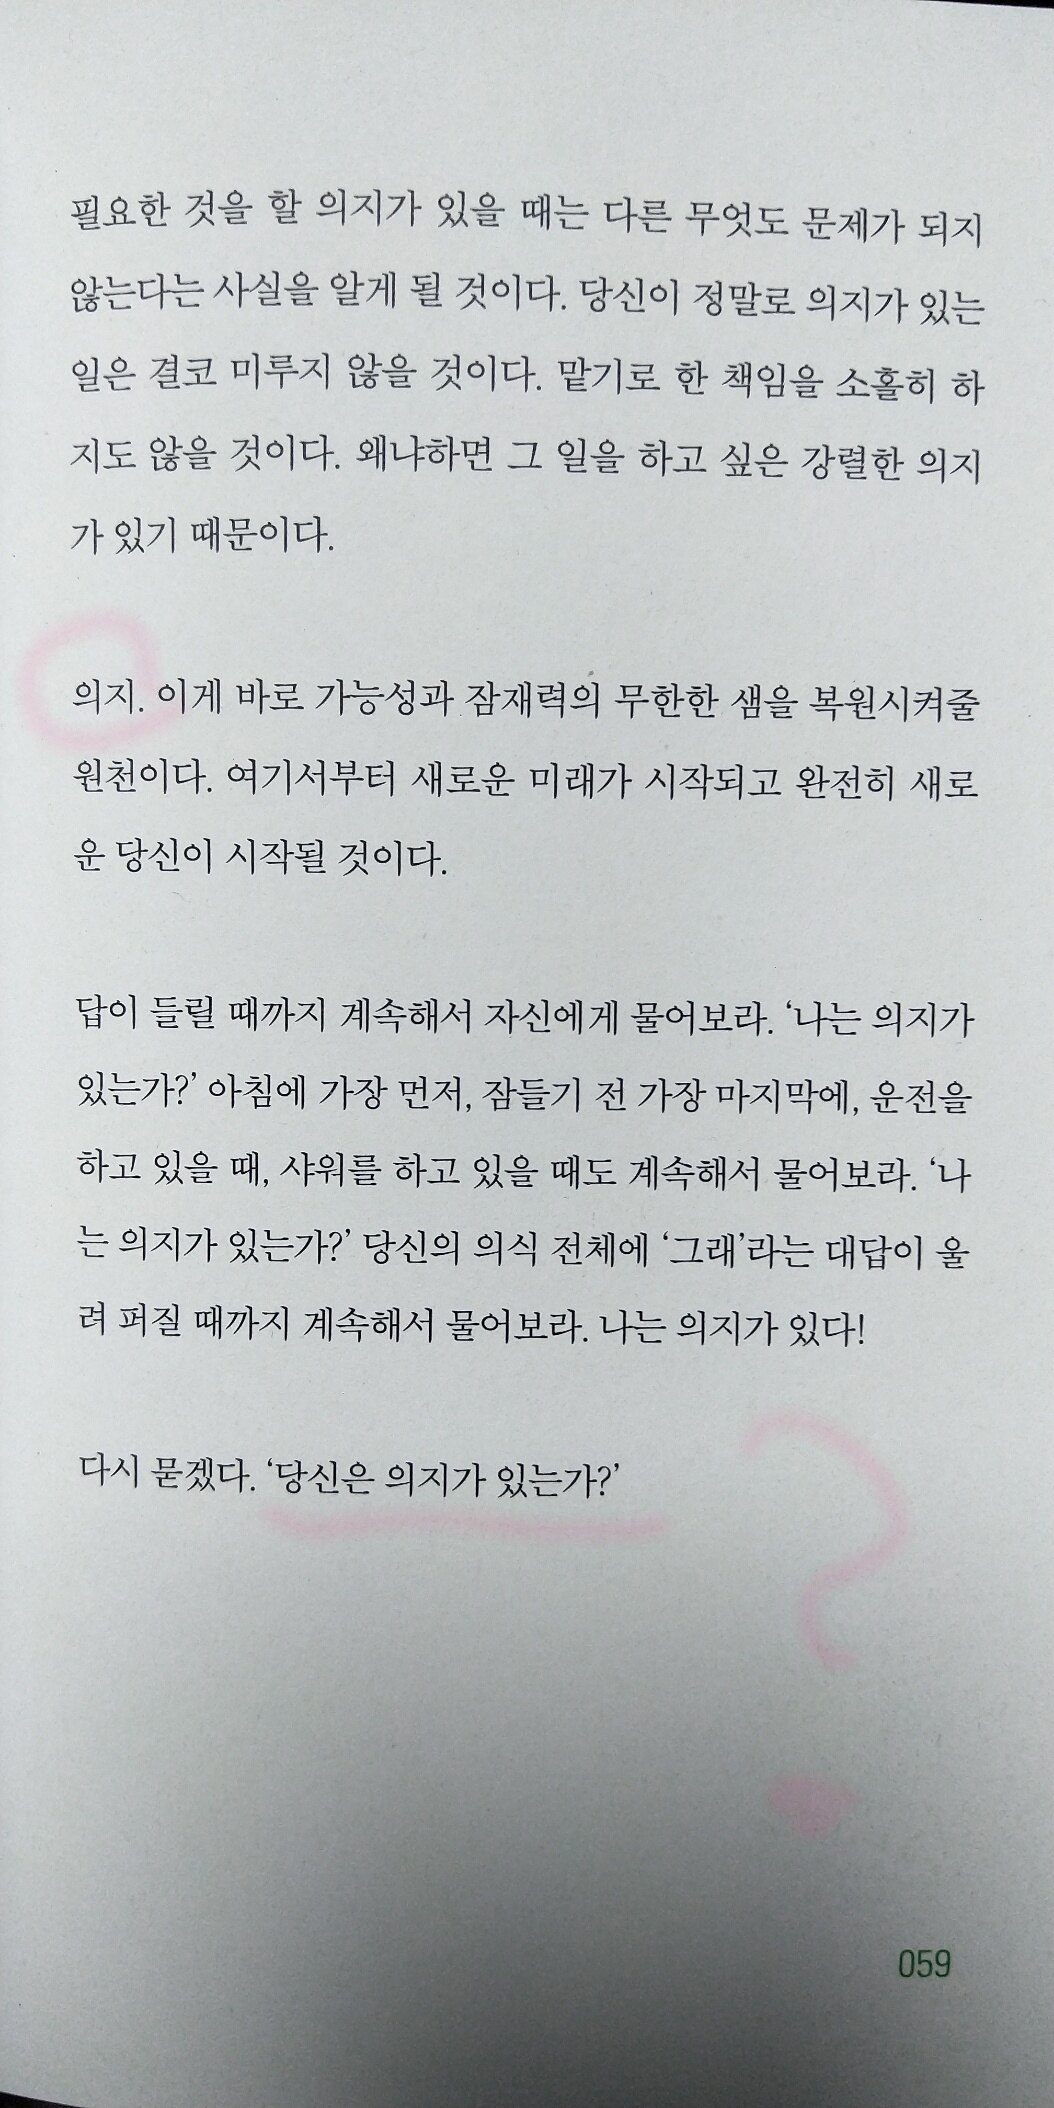 필요한 것을 할 의지가 있을 때는 다른 무엇도 문제가 되지
않는다는 사실을 알게 될 것이다. 당신이 정말로 의지가 있는
일은 결코 미루지 않을 것이다. 맡기로 한 책임을 소홀히 하
지도 않을 것이다. 왜냐하면 그 일을 하고 싶은 강렬한 의지
가 있기 때문이다.
의지. 이게 바로 가능성과 잠재력의 무한한 샘을 복원시켜줄
원천이다. 여기서부터 새로운 미래가 시작되고 완전히 새로
운 당신이 시작될 것이다.
답이 들릴 때까지 계속해서 자신에게 물어보라. ‘나는 의지가
있는가?’ 아침에 가장 먼저, 잠들기 전 가장 마지막에, 운전을
하고 있을 때, 샤워를 하고 있을 때도 계속해서 물어보라. ‘나
는 의지가 있는가?’ 당신의 의식 전체에 ‘그래’라는 대답이 울
려 퍼질 때까지 계속해서 물어보라. 나는 의지가 있다!
다시 묻겠다. ‘당신은 의지가 있는가?’
?
059